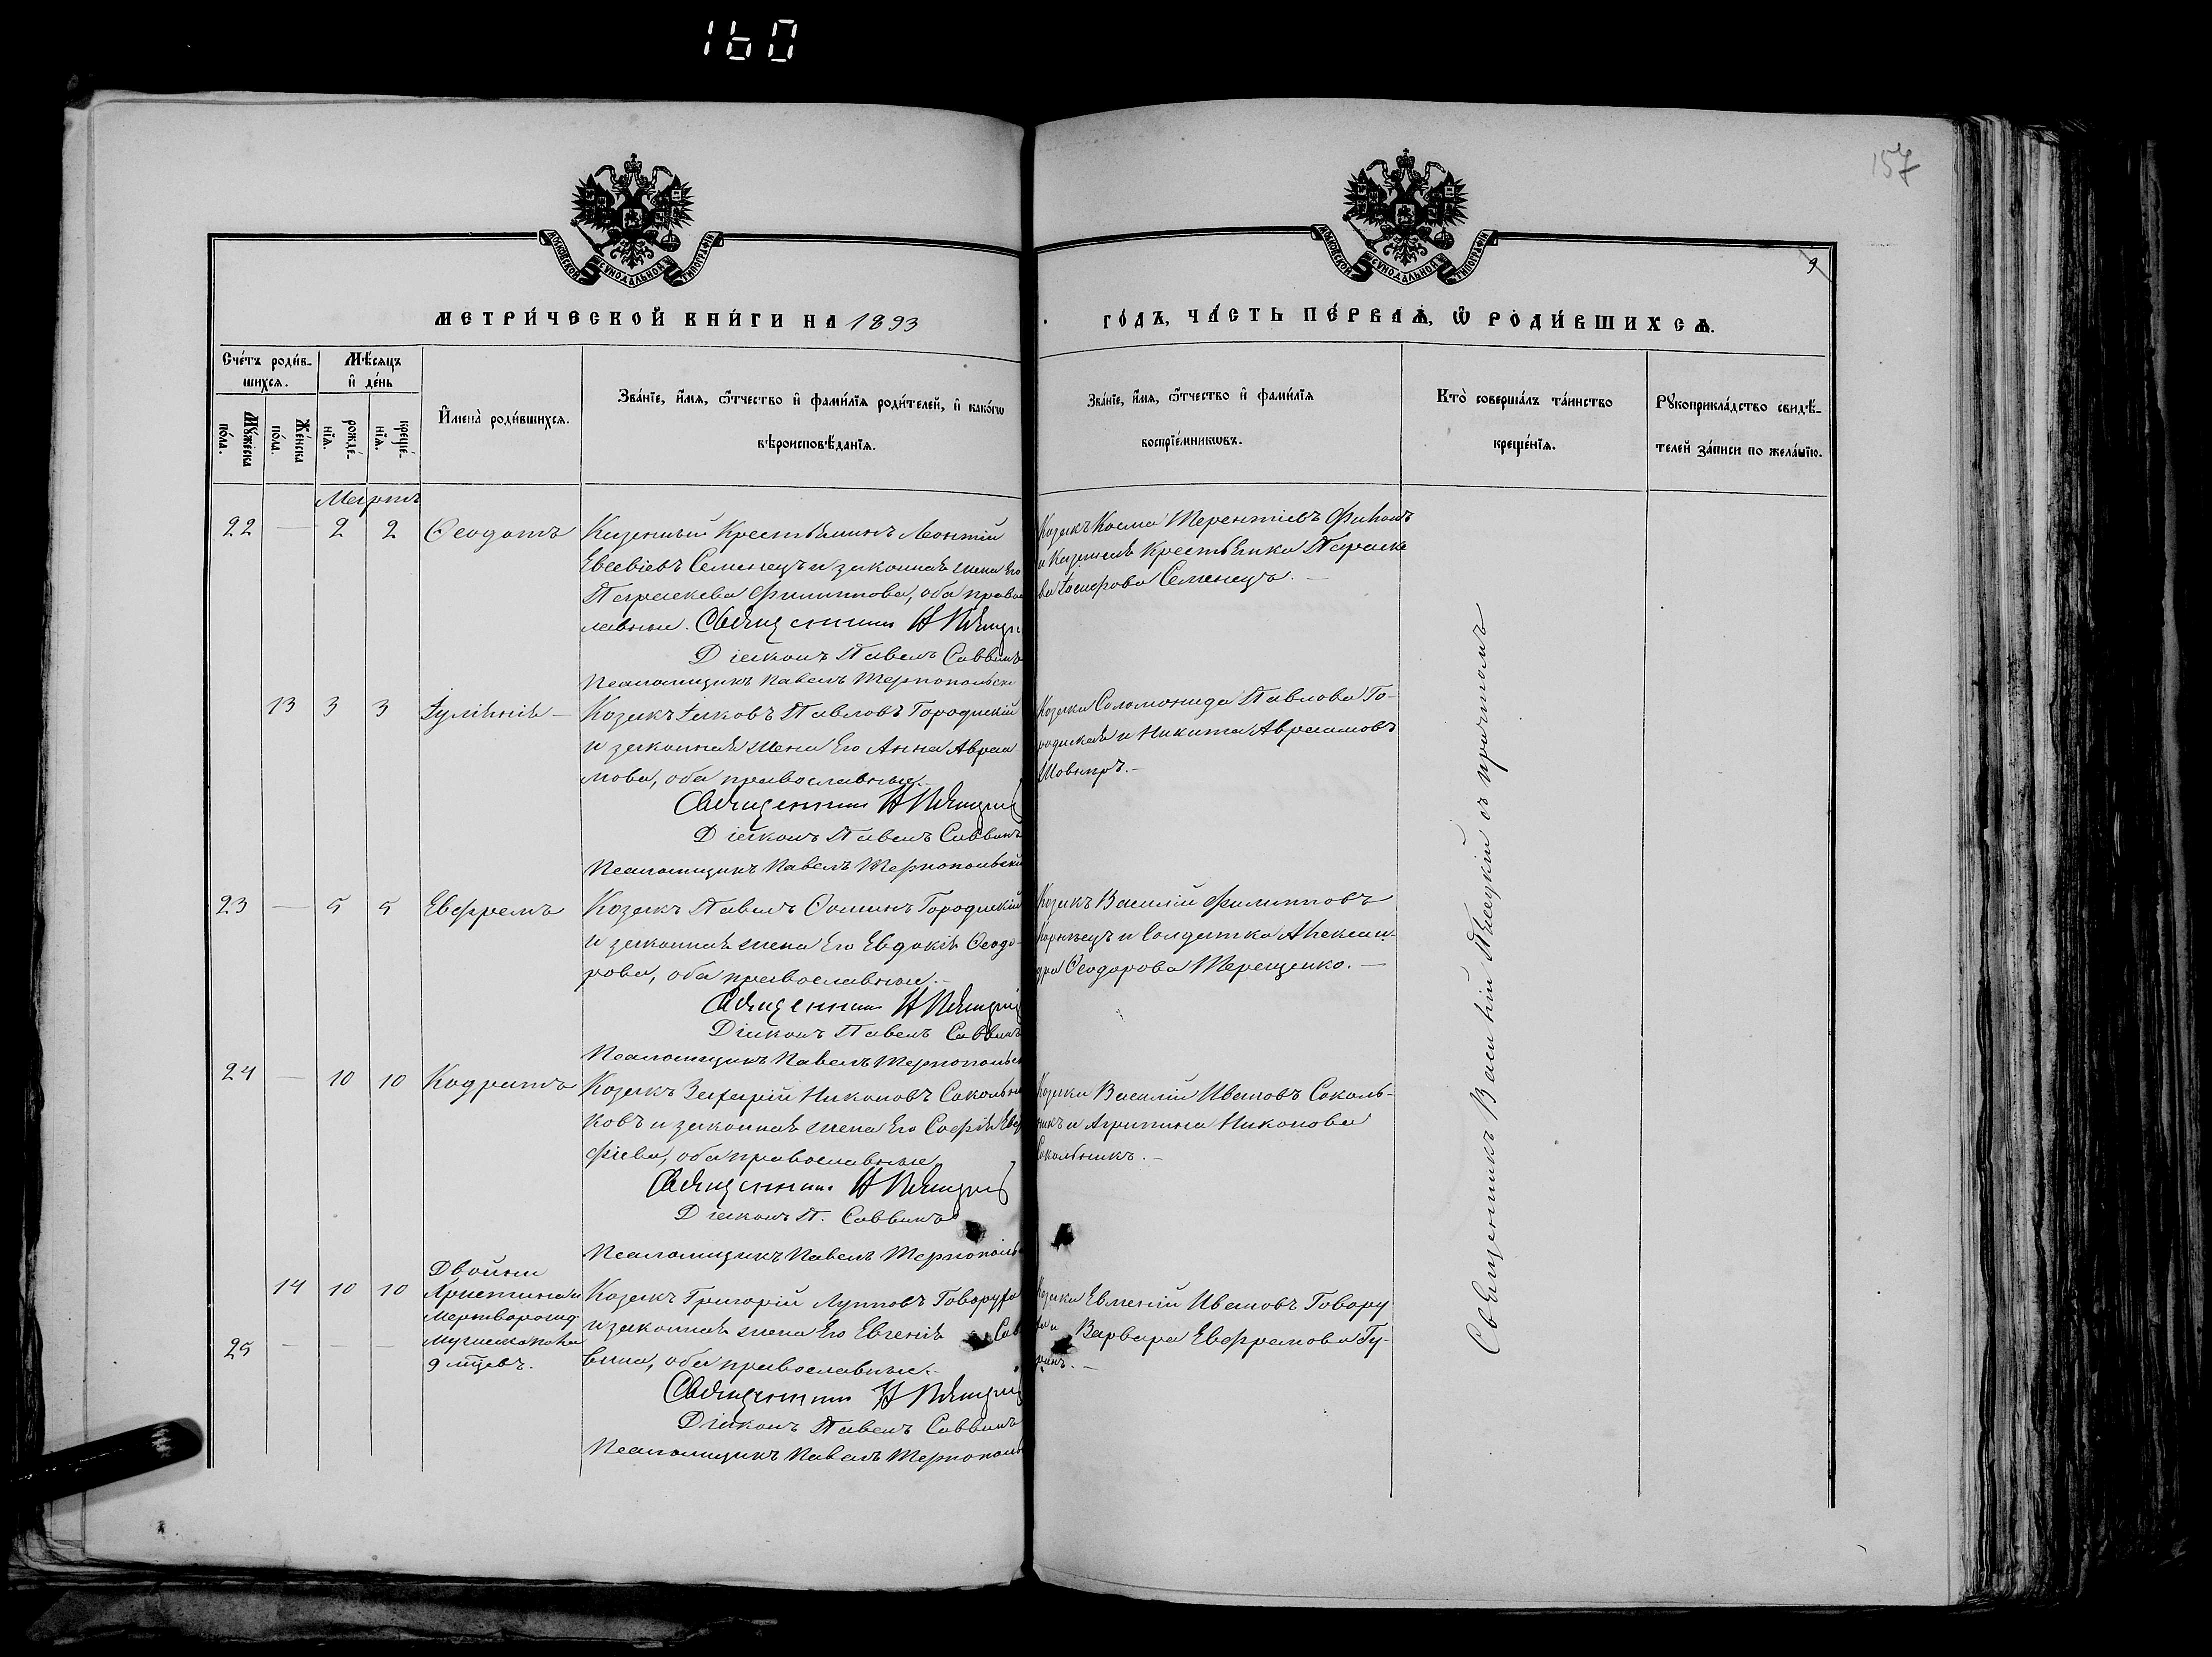 160
157
9
МОСКОВСКОЙ СѴНОДАЛЬНОЙ ТИПОГРАФІИ
МОСКОВСКОЙ СѴНОДАЛЬНОЙ ТИПОГРАФІИ
МЕТРИ́ЧЕСКОЙ КНИ́ГИ НА 1893
ГО́ДЪ, ЧА́СТЬ ПЕ́РВАѦ, Ѽ РОДИ́ВШИХСѦ.
Сче́тъ роди́в-
шихсѧ.
Мѣ́сяцъ
и҆ де́нь
Мꙋ́жеска
по́ла.
Же́нска
по́ла.
рожде́-
нїѧ.
креще́-
нїѧ.
И҆мена̀ роди́вшихсѧ.
Зва́нїе, и҆́мѧ, ѻ҆́тчество и҆ фами́лїѧ роди́телей, и҆ како́гѡ
вѣроисповѣ́данїѧ.
Зва́нїе, и҆́мѧ, ѻ҆́тчество и҆ фами́лїѧ
воспрїе́мникѡвъ.
Кто̀ соверша́лъ та́инство
креще́нїѧ.
Рꙋкоприкла́дство свидѣ́-
телей за́писи по жела́нїю.
Мартъ
22 — 2 2 Ѳеодотъ
Казенный Крестьянинъ Леонтій
Евсевіевъ Семенецъ и законная жена его
Параскева Филиппова, оба право
славные. Священникъ
Діаконъ Павелъ Саввинъ
Псаломщикъ Павелъ Тернопольскі
Козакъ Косма Терентіевъ
и Казенная Крестьянка Параске
ва Іосифова Семенецъ. —
13 3 3 Іуліанія —
Козакъ Іаковъ Павловъ Городискій
и законная жена его Анна Авраа
мова, оба православные. —
Священникъ
Діаконъ Павелъ Саввинъ
Псаломщикъ Павелъ Тернопольскі
Козаки Саломонида Павлова Го-
родиская и Никита Авраамовъ
Шовкпръ. —
23 — 5 5 Евфремъ
Козакъ Павелъ Ѳоминъ Городискій
и законная жена его Евдокія Ѳеодо-
рова, оба православные. —
Священникъ
Діаконъ Павелъ Саввинъ
Псаломщикъ Павелъ Тернопольск
Козакъ Василій Филипповъ
Корнѣецъ и Солдатка Алексан-
дра Ѳеодорова Терещенко. —
24 — 10 10 Кодратъ
Козакъ Захарій Никоновъ Сокольни
ковъ и законная жена его Софія Евѳ
фіева, оба православные
Священникъ
Діаконъ П. Саввинъ
Псаломщикъ Павелъ Тернополь
Козаки Василій Ивановъ Соколь-
никъ и Агрипина Никонова
Сокольникъ. —
Двойни
14 10 10 Христина и
мертворожд
25 — — — мужеска пола
9 мцевъ.
Козакъ Григорій Лупповъ Говоруха
и законная жена его Евгенія Сав
вина, оба православные. —
Священникъ
Діаконъ Павелъ Саввинъ
Псаломщикъ Павелъ Тернополь
Козаки Евменій Ивановъ Говору
ха и Варвара Евфремова Гу-
ринъ. —
Священникъ Василій съ причтомъ